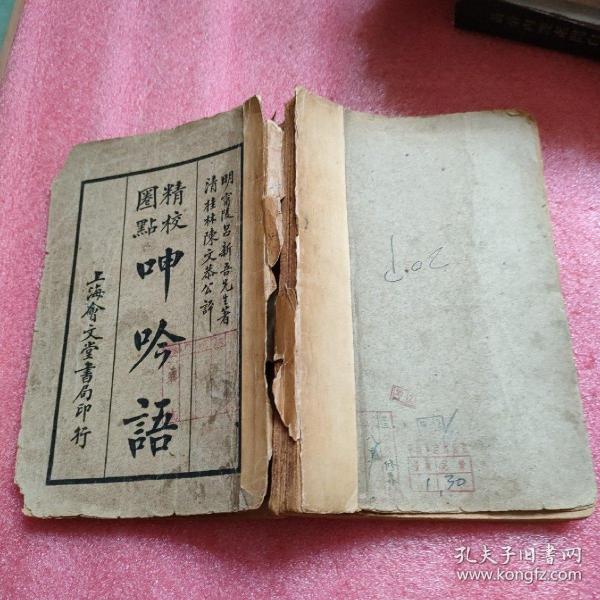 明甯陵呂新吾先生著
清桂林陳文恭公評
精校
圈點
呻吟語
上海會文堂書局印行
1.30
孔夫子旧书网
www.kongfz.com